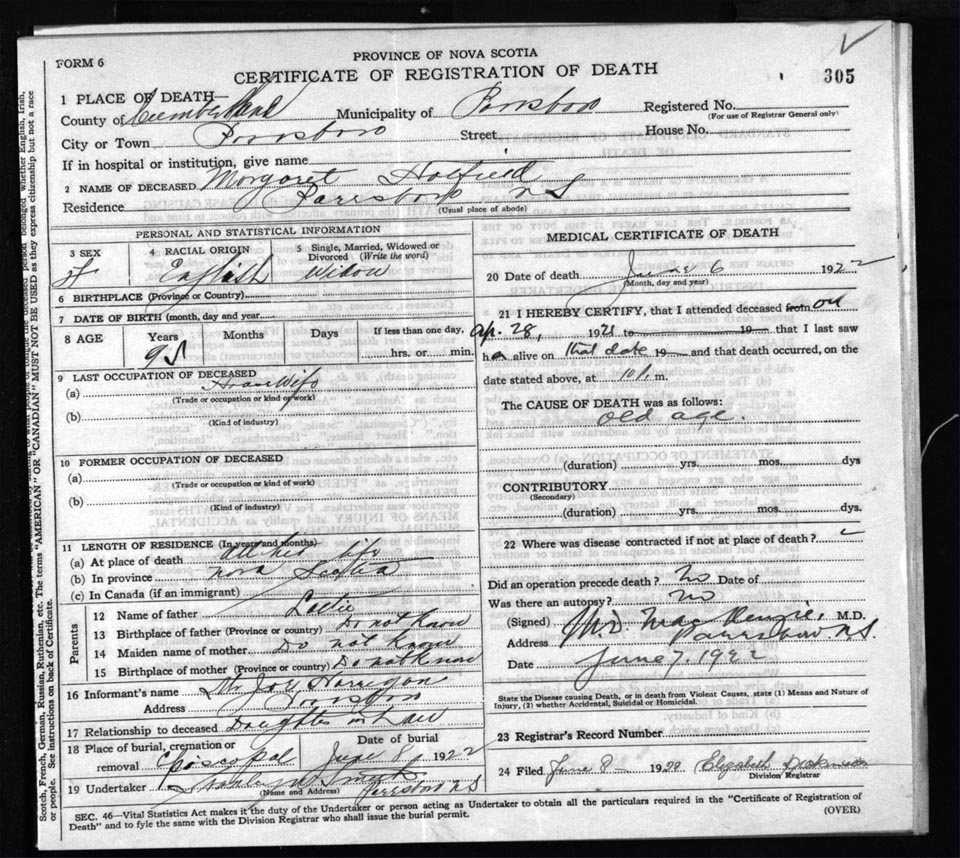 PROVINCE OF NOVA SCOTIA
FORM 6
CERTIFICATE OF REGISTRATION OF DEATH
305
1 PLACE OF DEATH—
County of Cumberland Municipality of Parrsboro Registered No.
(For use of Registrar General only)
City or Town Parrsboro Street House No.
If in hospital or institution, give name
2 NAME OF DECEASED Margaret Hatfield
Residence Parrsboro N S
(Usual place of abode)
PERSONAL AND STATISTICAL INFORMATION
3 SEX 4 RACIAL ORIGIN 5 Single, Married, Widowed or Divorced (Write the word)
F English Widow
6 BIRTHPLACE (Province or Country)
7 DATE OF BIRTH (month, day and year)
8 AGE Years Months Days If less than one day,
hrs. or min.
9 LAST OCCUPATION OF DECEASED
(a) House Wife
(Trade or occupation or kind of work)
(b)
(Kind of industry)
10 FORMER OCCUPATION OF DECEASED
(a)
(Trade or occupation or kind of work)
(b)
(Kind of industry)
11 LENGTH OF RESIDENCE (In years and months)
(a) At place of death all her life
(b) In province Nova Scotia
(c) In Canada (if an immigrant)
Parents
12 Name of father
13 Birthplace of father (Province or country) Do not know
14 Maiden name of mother Do not know
15 Birthplace of mother (Province or country) Do not know
16 Informant's name Joe
Address Parrsboro
17 Relationship to deceased Daughter in Law
18 Place of burial, cremation or removal Episcopal
Date of burial June 8 1922
19 Undertaker
(Name and Address) Parrsboro N S
MEDICAL CERTIFICATE OF DEATH
20 Date of death June 6 1922
(Month, day and year)
21 I HEREBY CERTIFY, that I attended deceased from on
Ap. 28, 1921 to 19 that I last saw
her alive on that date 19 and that death occurred, on the
date stated above, at m.
The CAUSE OF DEATH was as follows:
old age
(duration) yrs. mos. dys
CONTRIBUTORY
(Secondary)
(duration) yrs. mos. dys.
22 Where was disease contracted if not at place of death?
Did an operation precede death? No Date of
Was there an autopsy? No
(Signed) MacKenzie, M.D.
Address Parrsboro N.S.
Date June 7, 1922
State the Disease causing Death, or in death from Violent Causes, state (1) Means and Nature of
Injury, (2) whether Accidental, Suicidal or Homicidal.
23 Registrar's Record Number
24 Filed June 8 Elizabeth
Division Registrar
SEC. 46—Vital Statistics Act makes it the duty of the Undertaker or person acting as Undertaker to obtain all the particulars required in the "Certificate of Registration of
Death" and to fyle the same with the Division Registrar who shall issue the burial permit.
(OVER)